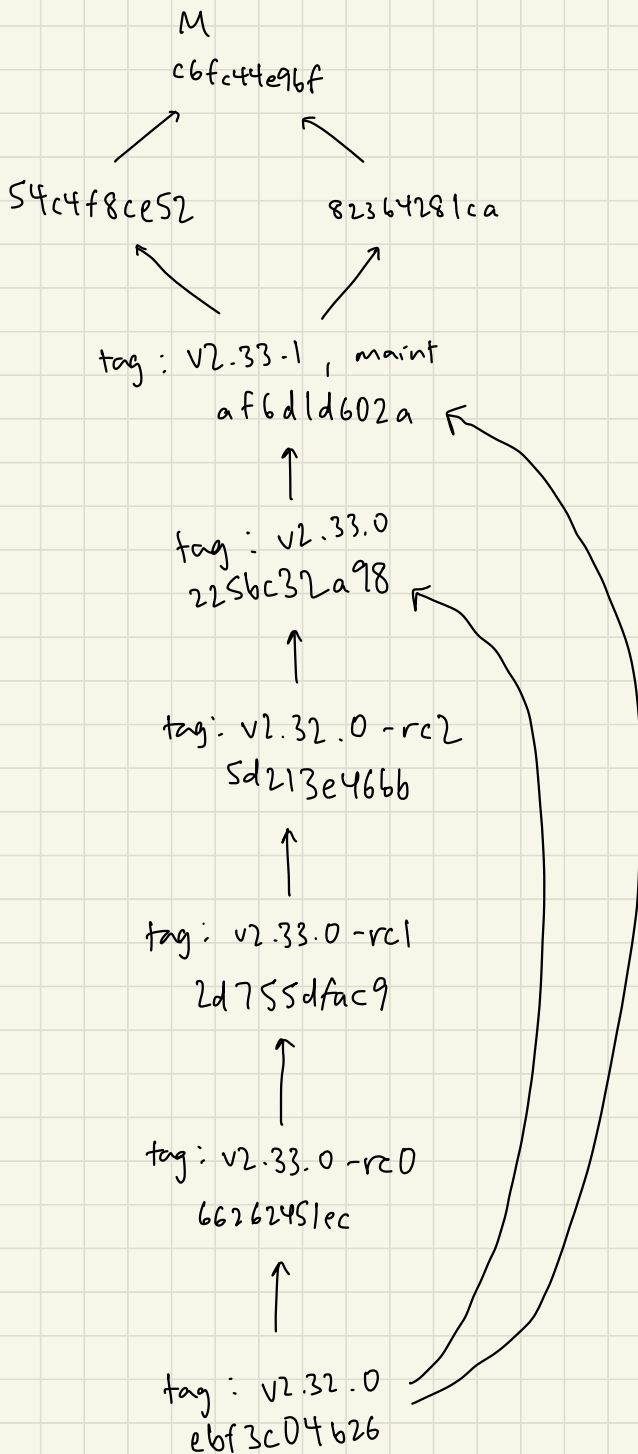 M
c6fc44e96f
54c4f8ce52
82364281ca
tag: v2.33.1, maint
af6d1d602a
tag: v2.33.0
225bc32a98
tag: v2.32.0-rc2
5d213e466b
tag: v2.33.0-rc1
2d755dfac9
tag: v2.33.0-rc0
66262451ec
tag: v2.32.0
ebf3c04626